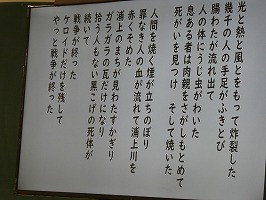 光と熱と風とをもって炸裂した
幾千の人の手足がふきとび
腸わたが流れ出て
人の体にうじ虫がわいた
息ある者は肉親をさがしもとめて
死がいを見つけ そして焼いた
人間を焼く煙が立ちのぼり
罪なき人の血が流れて浦上川を
赤くそめた
浦上のまちが見わたすかぎり
ガラガラの瓦だけになり
拾う人もない黒こげの死体が
続いて
戦争が終った
ケロイドだけを残して
やっと戦争が終った